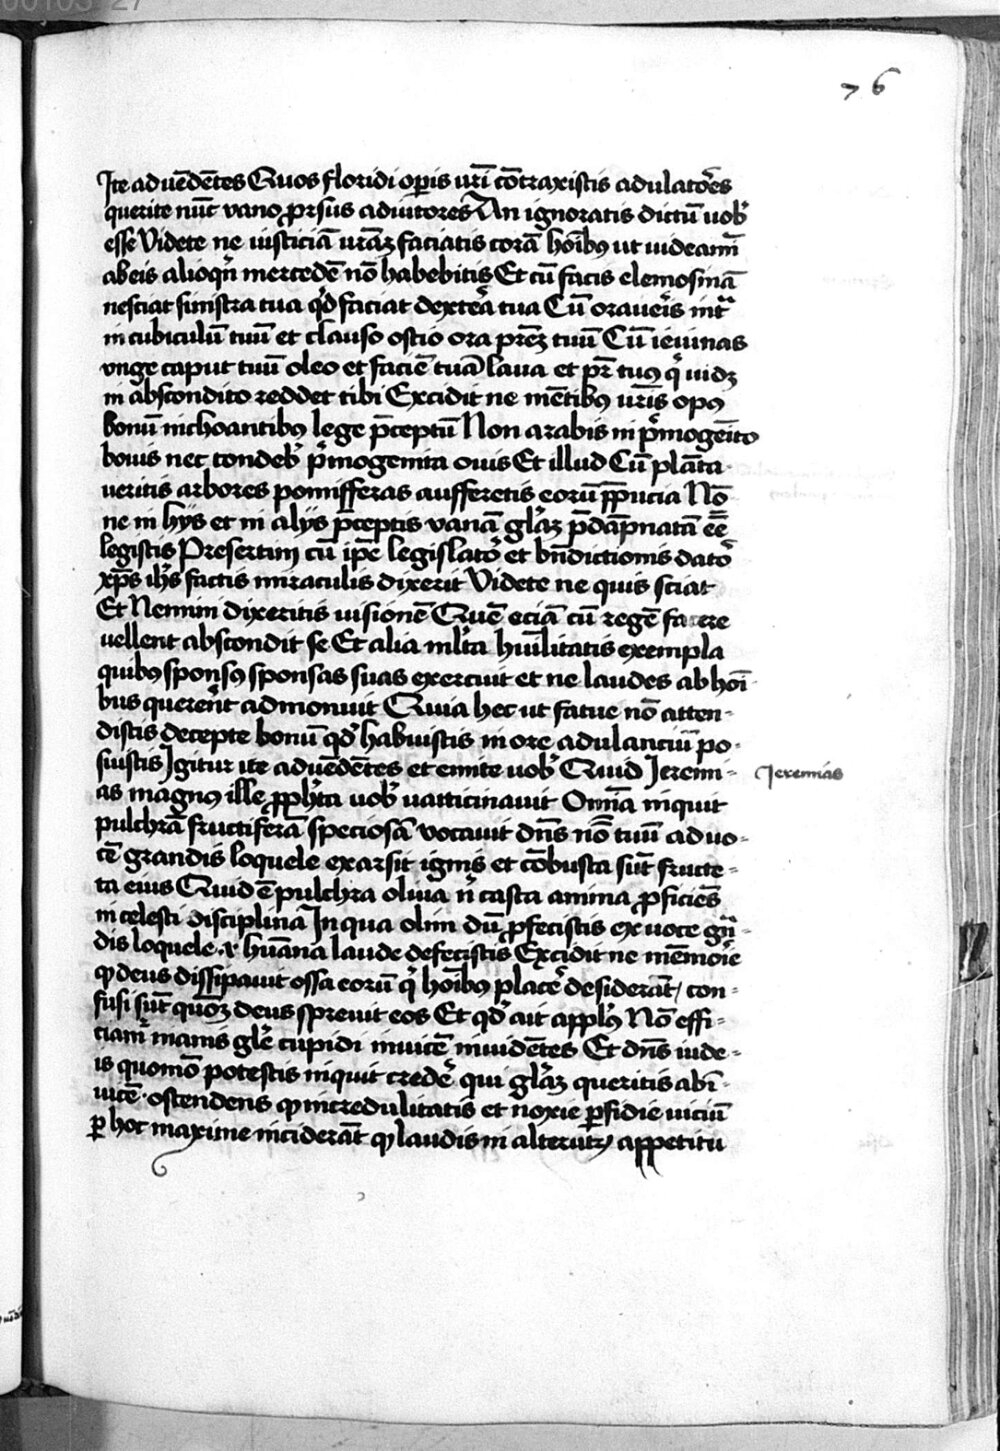 76
Ite ad uēdētes Quos floridi oꝑis ur̄i cōtraxistis adulatoēs
querite nūc vano ꝓrsus adiutores An ignoratis dictū uobꝭ
esse Videte ne iusticiā urāꝫ faciatis corā hoībꝯ ut uideamī
ab eis alioqn̄ mercedē nō habebitis Et cū facis elemosinā
nesciat sinistra tua qd̕ faciat dextēa tua Cū oraueīs int̄
in cubiculū tuū et clauso ostio ora prēꝫ tuū Cū ieiunas
vnge caput tuū oleo et faciē tuā laua et pr̄ tuꝯ q̕ uidꝫ
in abscondito reddet tibi Excidit ne mētibꝯ ur̄is opꝯ
bonū inchoantibꝯ lege p̄ceptū Non arabis in p̕mogeīto
bouis nec tondebꝭ p̕mogenita ouis Et illud Cū plāta
ueritis arbores pomifferas aufferetis eorū p̄pucia Nō
ne in hijs et in alijs p̄ceptis vanā gl̄aꝫ p̄dāpnatā eē
legistis Presertim cū ip̄e legislato᷑ et bn̄dictionis dato᷑
xp̄s ih̄s factis miraculis dixerit Videte ne quis sciat
Et Nemini dixeritis uisionē Quē eciā cū regē facere
uellent abscondit se Et alia ml̄ta hūilitatis exempla
quibꝯ sponsꝯ sponsas suas exercuit et ne laudes ab hoī
bus querēnt admonuit Quia hec ut fatue nō atten-
distis decepte bonū qd̕ habuistis in ore adulanciū po-
suistis Igitur ite ad uēdētes et emite uobꝭ Quid Jeremi-
Jeremias
as magnꝯ ille ꝓph̄ta uobꝭ uatticinauit Oliuā inquit
pulchrā fructiferā speciosā vocauit dn̄s nomē tuū ad uo-
cē grandis loquele exarsit ignis et cōbusta sūt fructe-
ta eius Quid ē pulchra oliua n̄ casta anima ꝓficiēs
in celesti disciplina In qua olim dū ꝓfecistis ex uoce gn̄-
dis loquele .i. hūana laude defecistis Excidit ne mēmoīe
ꝙ deus dissipauit ossa eorū q̕ hoībꝯ placē᷑ desiderāt, con-
fusi sūt quōꝫ deus spreuit eos Et qd̕ ait appl̄s Nō effi-
ciam᷑ inanis gl̄e cupidi inuicē inuidētes Et dn̄s iude-
is quomō potestis inquit credē᷑ qui gl̄aꝫ queritis ab ī-
uicē. ostendens ꝙ incredulitatis et noxie ꝑfidie uiciū
ꝑ hoc maxime inciderāt ꝙ laudis in alterutꝝ appetitu